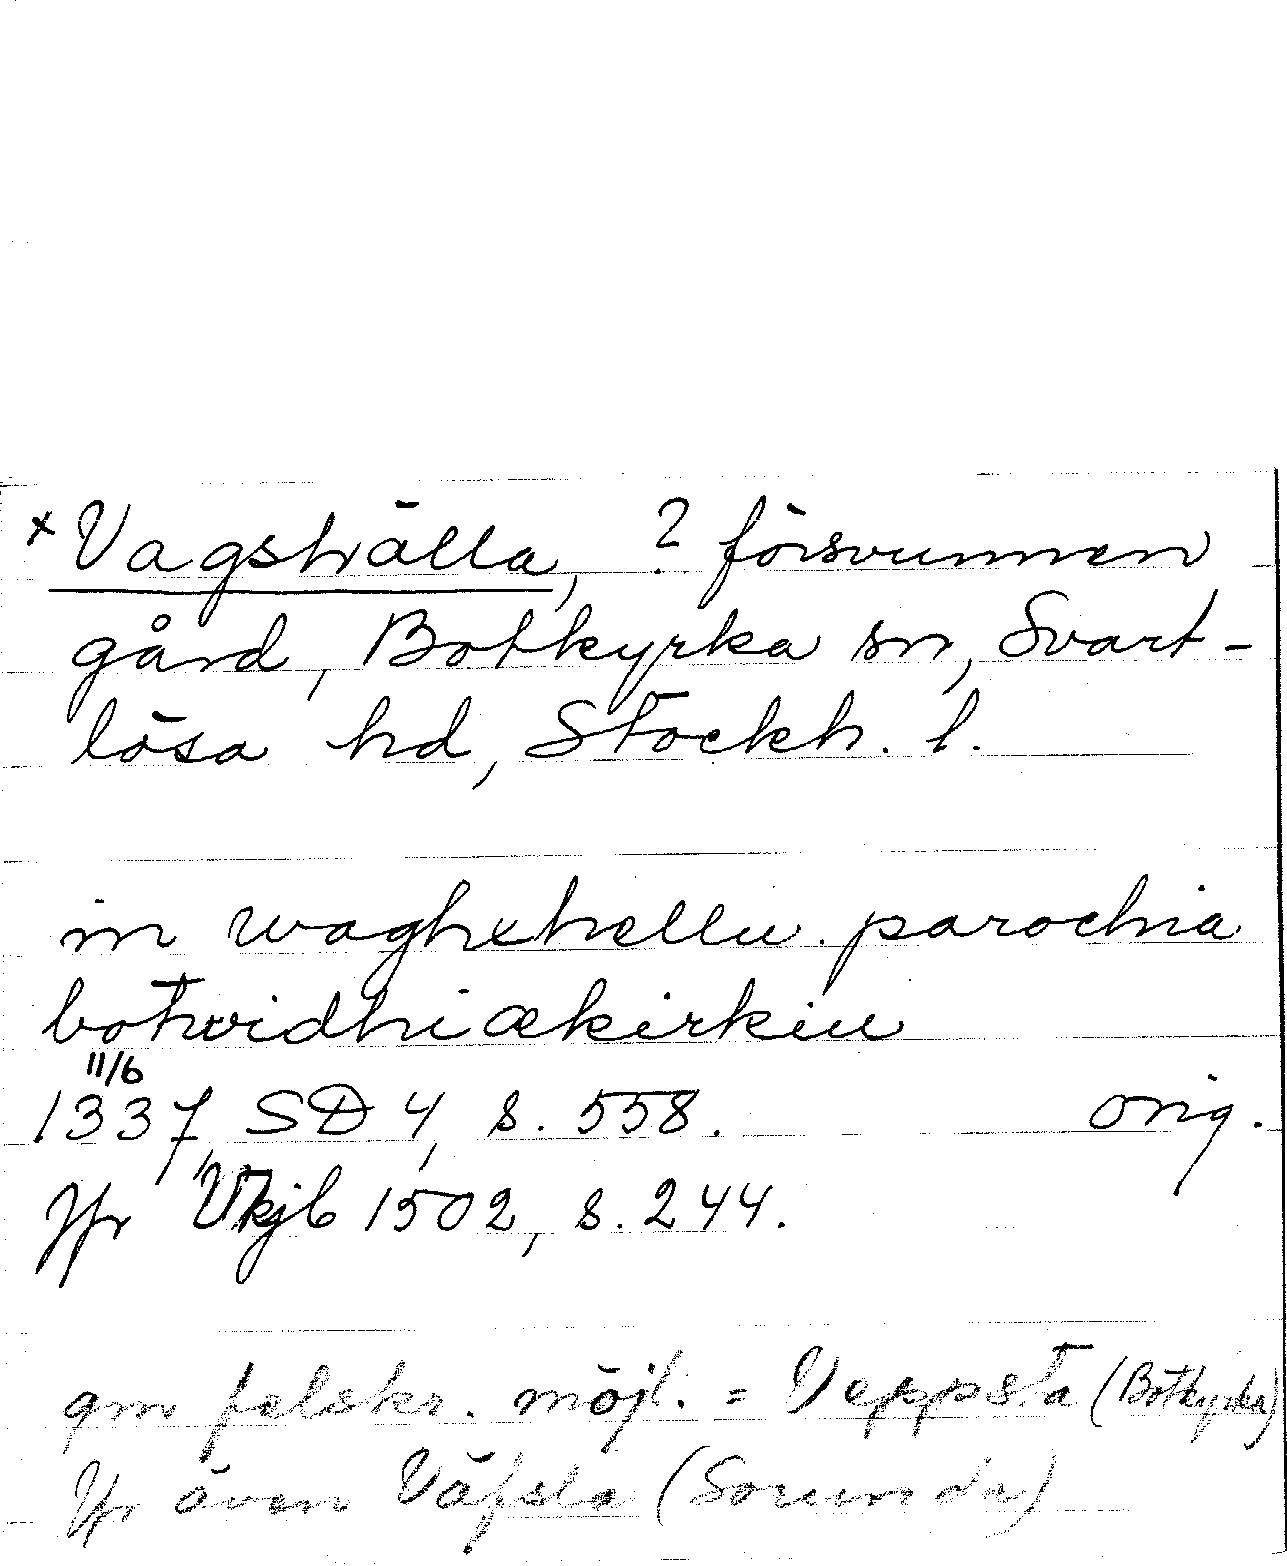 ×Vagshälla, ? försvunnen
gård, Botkyrka sn, Svart-
lösa hd, Stockh. l.
in waghxhellu. parochia
botwidhiækirkiu
11/6
1337, SD 4, s. 558. orig.
Jfr Vkjb 1502, s. 244.
gm felskr. möjl. = Veppsta (Botkyrka)
Jfr även Väfsla (Sorunda)